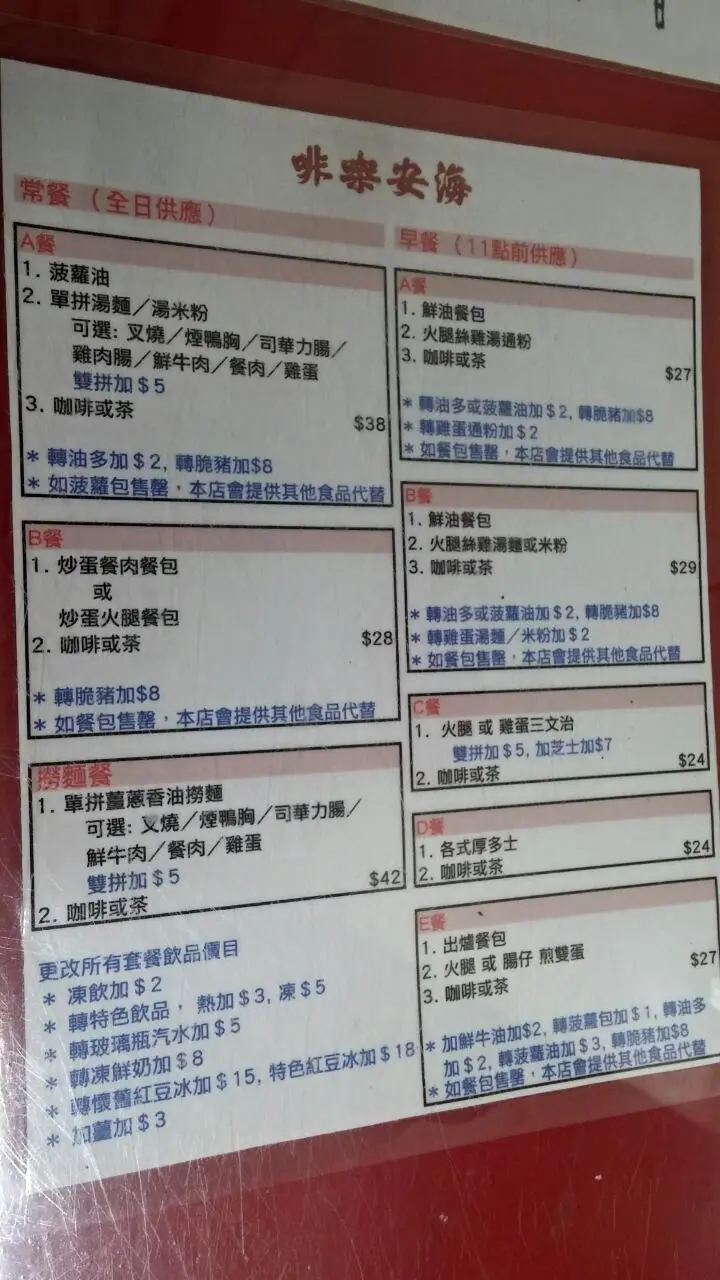 啡寀安海
常餐（全日供應）
A餐
1. 菠蘿油
2. 單拼湯麵／湯米粉
可選: 叉燒／煙鴨胸／司華力腸／
雞肉腸／鮮牛肉／餐肉／雞蛋
雙拼加＄5
3. 咖啡或茶
$38
* 轉油多加＄2, 轉脆豬加$8
* 如菠蘿包售罄，本店會提供其他食品代替
B餐
1. 炒蛋餐肉餐包
或
炒蛋火腿餐包
2. 咖啡或茶
$28
* 轉脆豬加$8
* 如餐包售罄，本店會提供其他食品代替
撈麵餐
1. 單拼薑蔥香油撈麵
可選: 叉燒／煙鴨胸／司華力腸／
鮮牛肉／餐肉／雞蛋
雙拼加＄5
$42
2. 咖啡或茶
更改所有套餐飲品價目
* 凍飲加＄2
* 轉特色飲品， 熱加＄3, 凍＄5
* 轉玻璃瓶汽水加＄5
* 轉凍鮮奶加＄8
* 轉懷舊紅豆冰加＄15, 特色紅豆冰加＄18
* 加薑加＄3
早餐（11點前供應）
A餐
1. 鮮油餐包
2. 火腿絲雞湯通粉
3. 咖啡或茶
$27
* 轉油多或菠蘿油加＄2, 轉脆豬加$8
* 轉雞蛋通粉加＄2
* 如餐包售罄，本店會提供其他食品代替
B餐
1. 鮮油餐包
2. 火腿絲雞湯麵或米粉
3. 咖啡或茶
$29
* 轉油多或菠蘿油加＄2, 轉脆豬加$8
* 轉雞蛋湯麵／米粉加＄2
* 如餐包售罄，本店會提供其他食品代替
C餐
1. 火腿 或 雞蛋三文治
雙拼加＄5, 加芝士加$7
2. 咖啡或茶
$24
D餐
1. 各式厚多士
2. 咖啡或茶
$24
E餐
1. 出爐餐包
2. 火腿 或 腸仔 煎雙蛋
3. 咖啡或茶
$27
* 加鮮牛油加$2, 轉菠蘿包加＄1, 轉油多
加＄2, 轉菠蘿油加＄3, 轉脆豬加$8
* 如餐包售罄，本店會提供其他食品代替